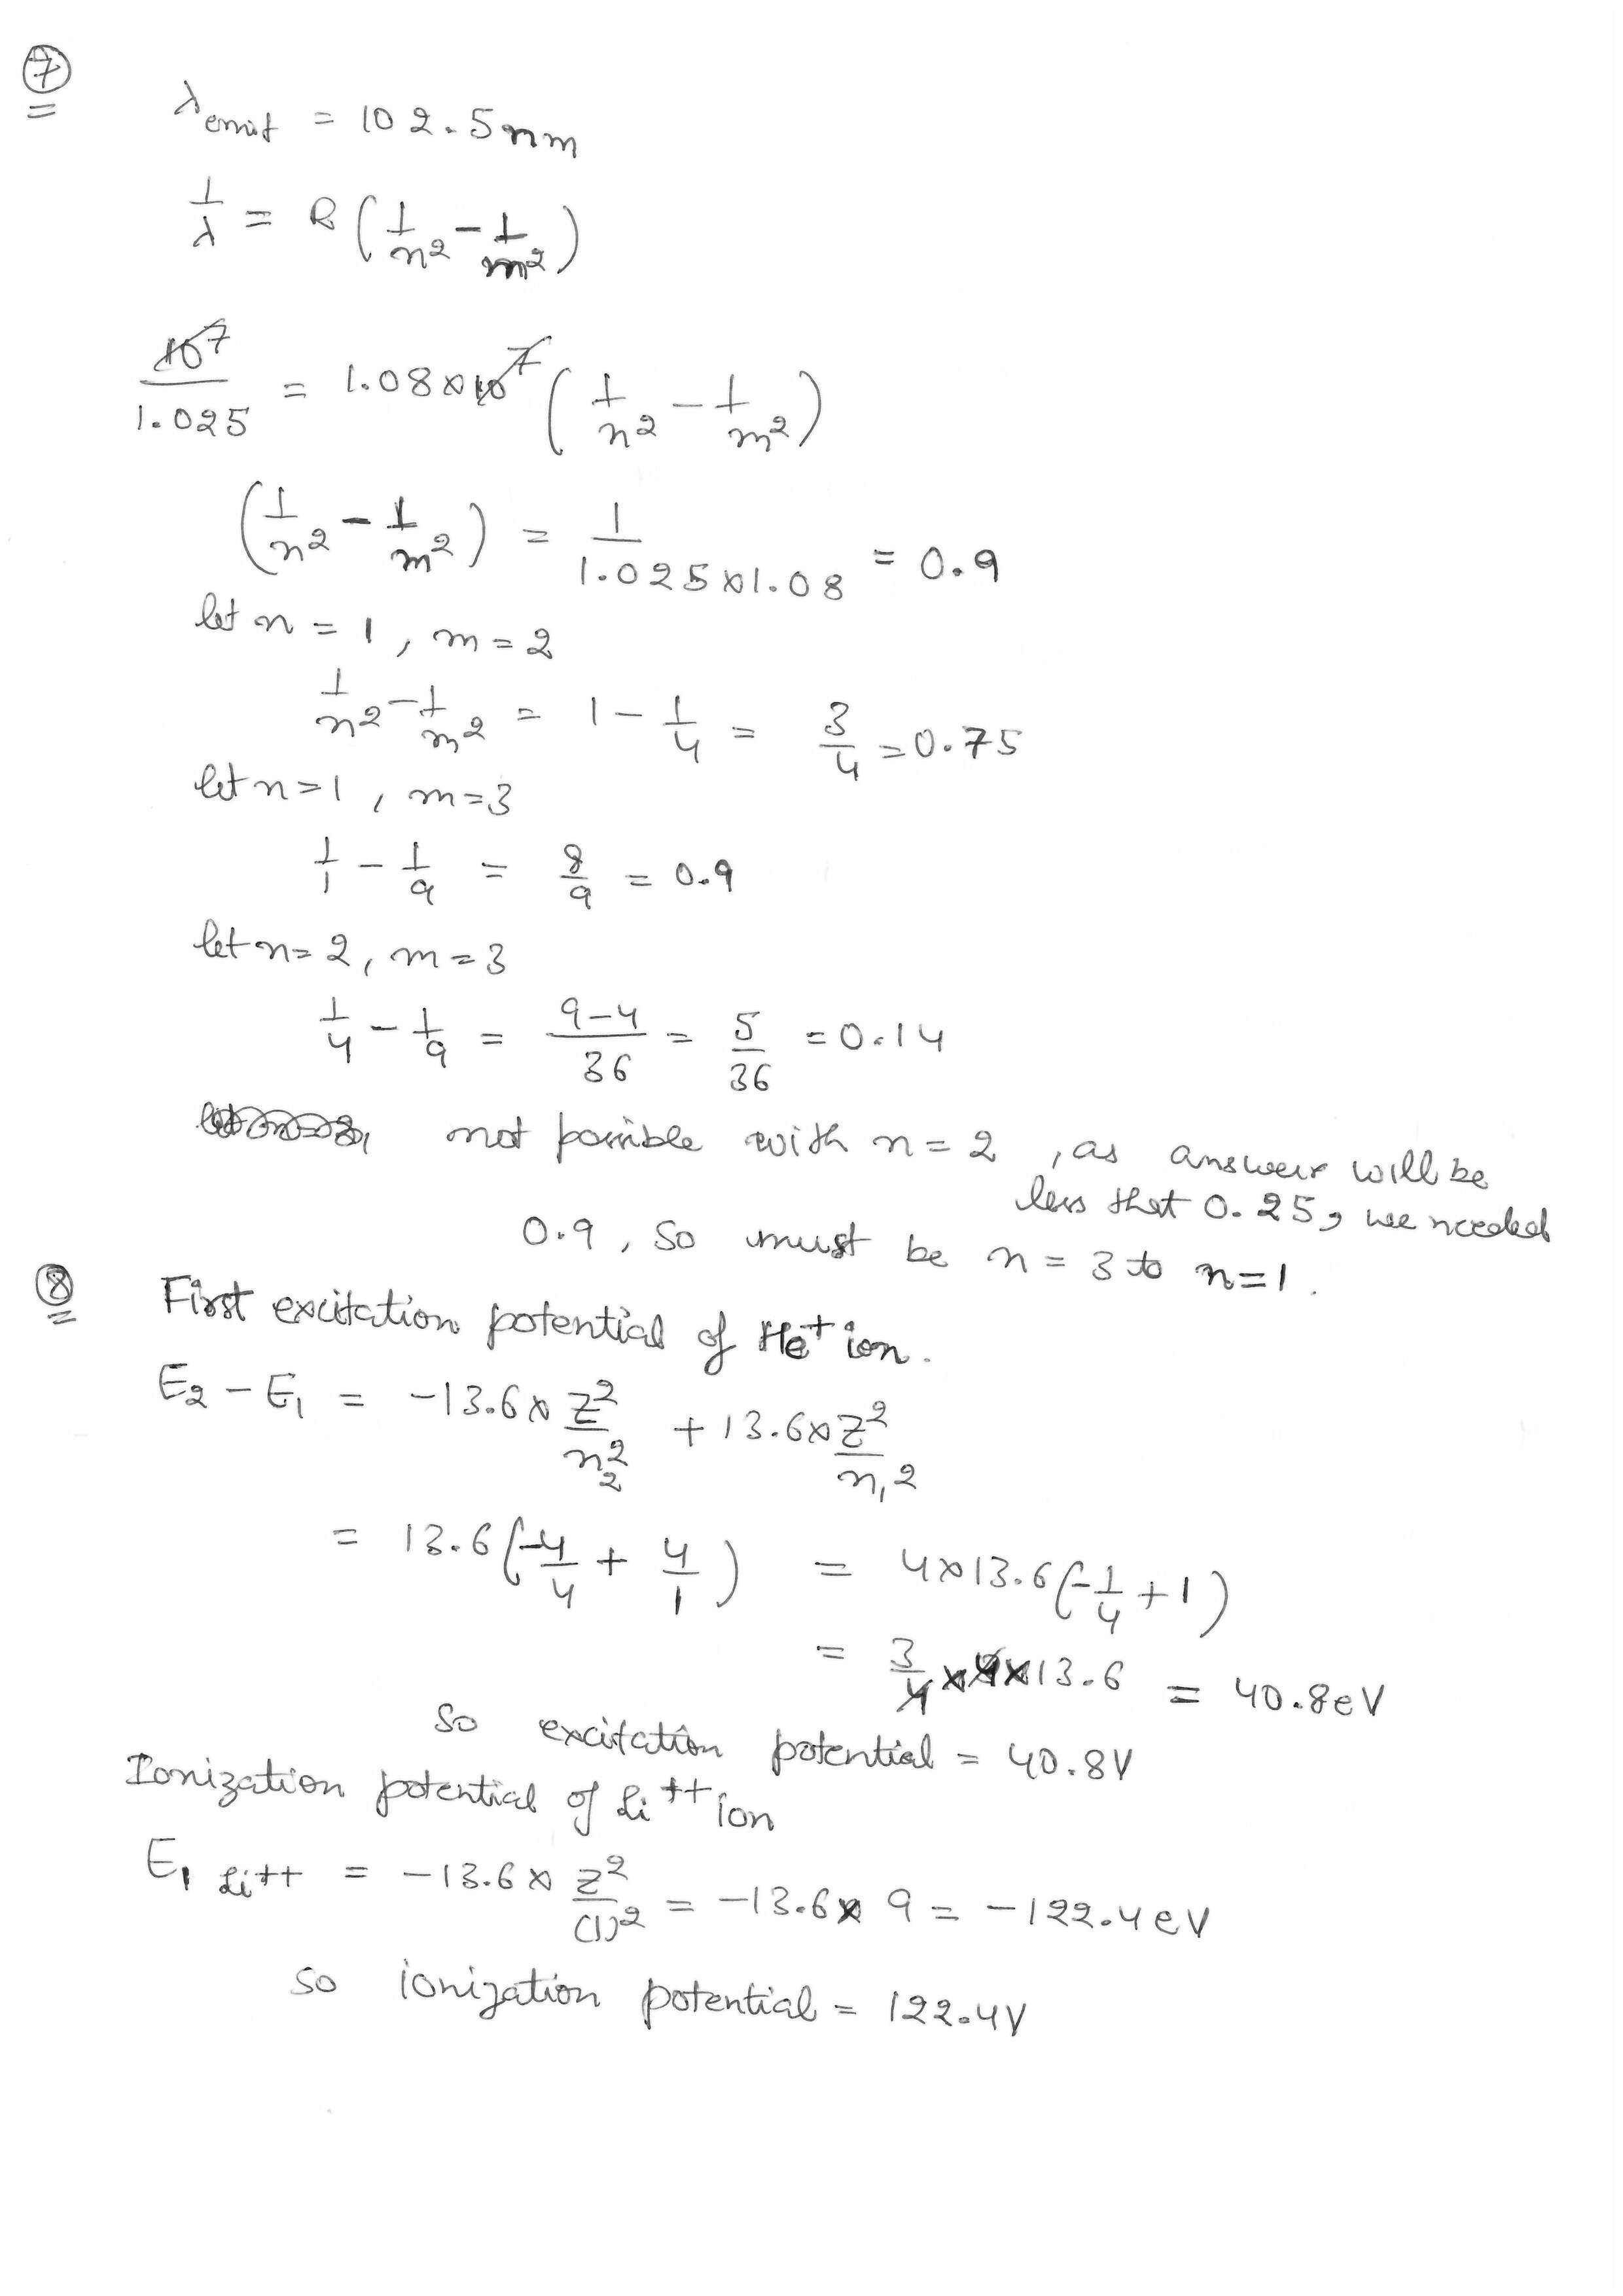 7
λemit = 102.5nm
1/λ = R(1/n² - 1/m²)
10⁷/1.025 = 1.08×10⁷(1/n² - 1/m²)
(1/n² - 1/m²) = 1/1.025×1.08 = 0.9
let n = 1, m = 2
1/n² - 1/m² = 1 - 1/4 = 3/4 = 0.75
let n=1, m=3
1/1 - 1/9 = 8/9 = 0.9
let n= 2, m = 3
1/4 - 1/9 = 9-4/36 = 5/36 = 0.14
not possible with n = 2, as answer will be
less that 0.25, we needed
0.9, so must be n = 3 to n=1.
8 First excitation potential of He⁺ ion.
E₂ - E₁ = -13.6× Z²/n₂² + 13.6× Z²/n₁²
= 13.6(-4/4 + 4/1) = 4×13.6(-1/4 + 1)
= 3/4 ×4×13.6 = 40.8eV
So excitation potential = 40.8V
Ionization potential of Li⁺⁺ ion
E₁ Li++ = -13.6× Z²/(1)² = -13.6× 9 = -122.4eV
so ionization potential = 122.4V